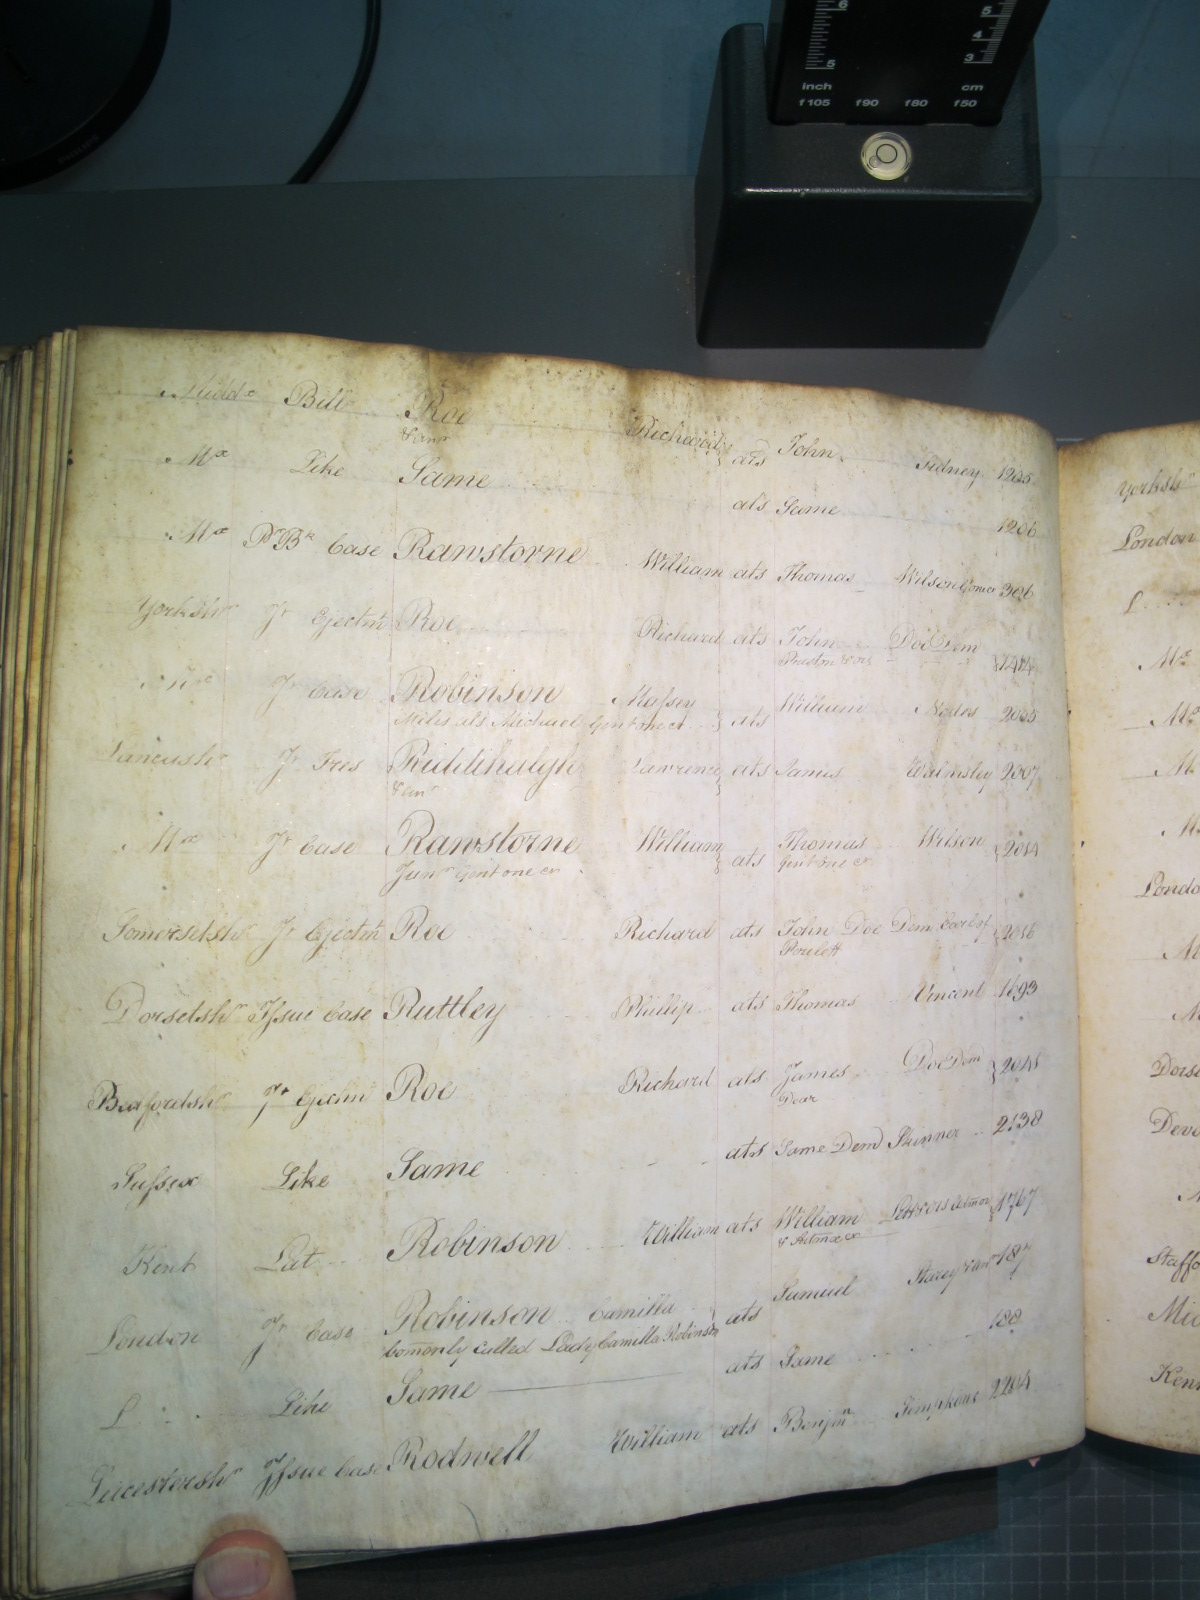 6 5
5 4 3
inch cm
f105 f90 f80 f50
PHILIPS
Midd:x Bill Roe Richard ats John Sidney 1205
& anr
Mx Like Same ats Same 1206
Mx Case Rawstorne William ats Thomas Wilson Gent one &c 306
Yorkshr Jt Ejectmt Roe Richard ats John Doe Dem 1414
Preston & ors
Mx Jt Case Robinson Massey ats William 2005
Miles als Michael Gent one &c
Lancashr Jt Tres Riddihalgh Lawrence ats James Walmsley 2007
& anr
Mx Jt Case Rawstorne William ats Thomas Wilson 2014
Junr Gent one &c Gent one &c
Somersetshr Jt Ejectmt Roe Richard ats John Doe Dem Earl of 2016
Poulett
Dorsetshr Issue Case Ruttley Phillip ats Thomas Vincent 1693
Bedfordshr Jt Ejectmt Roe Richard ats James Doe Dem 2048
Dear
Sussex Like Same ats Same Dem Skinner 2138
Kent Lat Robinson William ats William 1767
London Jt Case Robinson Camilla ats Samuel Stacey & anr 187
Comonly Called Lady Camilla Robinson
L Like Same ats Same 188
Leicestershr Issue Case Rodwell William ats Benjmn Simpkins 2204
Yorkshr
London
L
Mx
Mx
M
M
Londo
M
M
Dorse
Devo
Staffo
Mid
Ken